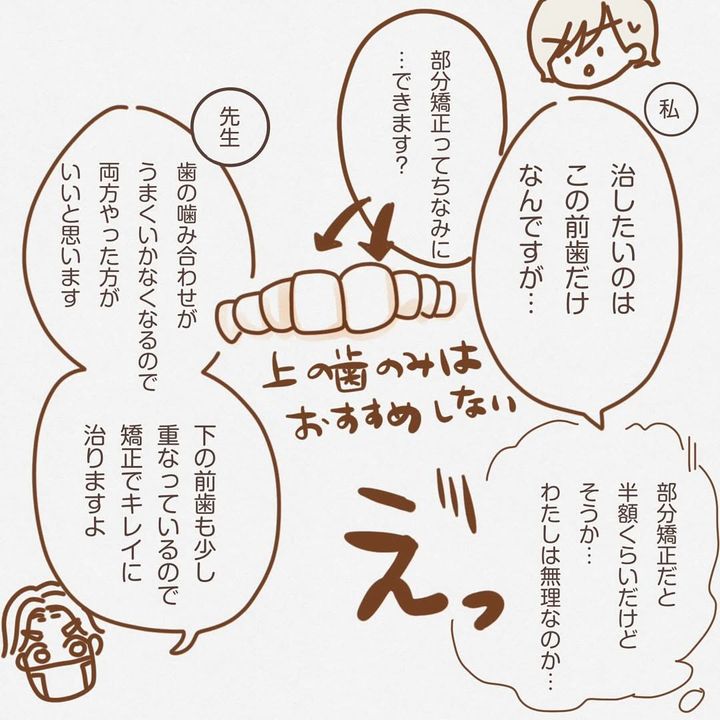 私
治したいのは
この前歯だけ
なんですが…
部分矯正ってちなみに
…できます?
先生
歯の噛み合わせが
うまくいかなくなるので
両方やった方が
いいと思います
上の歯のみは
おすすめしない
下の前歯も少し
重なっているので
矯正でキレイに
治りますよ
えっ
部分矯正だと
半額くらいだけど
そうか…
わたしは無理なのか…